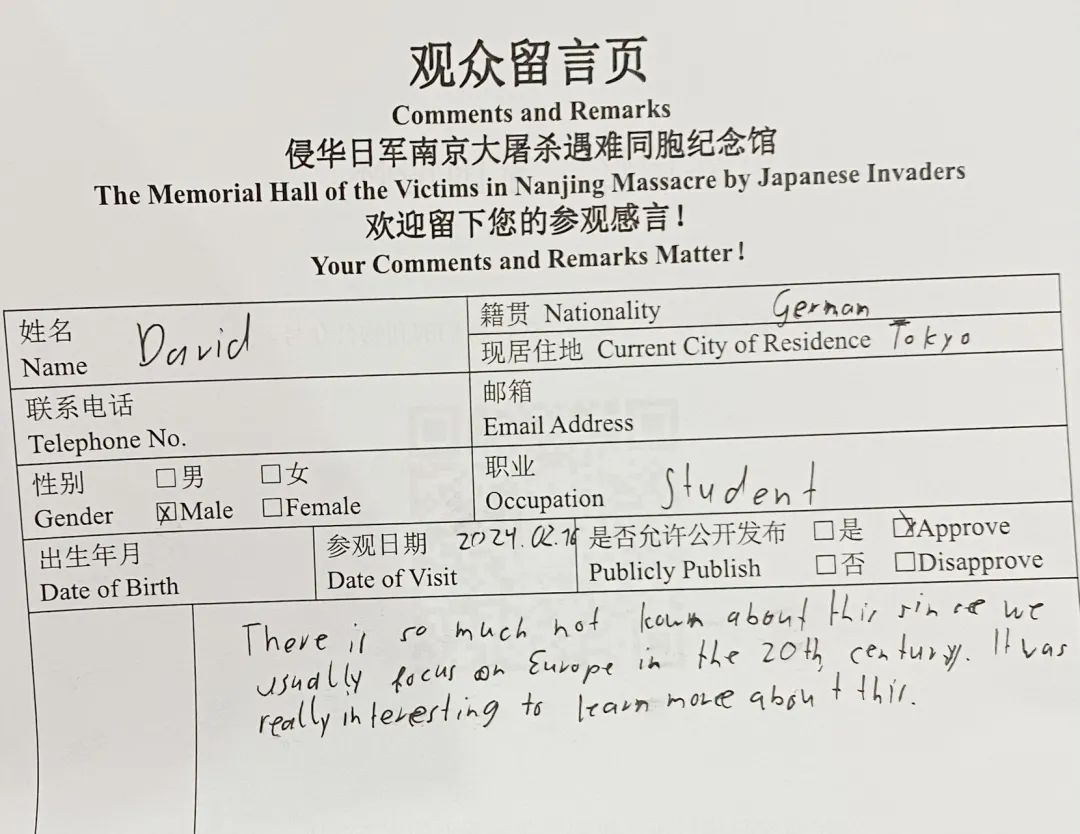 观众留言页
Comments and Remarks
侵华日军南京大屠杀遇难同胞纪念馆
The Memorial Hall of the Victims in Nanjing Massacre by Japanese Invaders
欢迎留下您的参观感言！
Your Comments and Remarks Matter！
姓名
Name David
籍贯 Nationality German
现居住地 Current City of Residence Tokyo
联系电话
Telephone No.
邮箱
Email Address
性别 □男 □女
Gender ☒Male □Female
职业
Occupation Student
出生年月
Date of Birth
参观日期 2024.02.16
Date of Visit
是否允许公开发布 □是 ☒Approve
Publicly Publish □否 □Disapprove
There is so much not kown about this since we
usually focus on Europe in the 20th century. It was
really interesting to learn more about this.